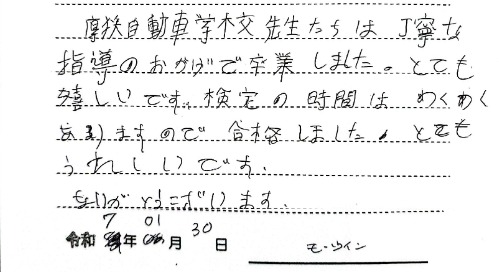 摩耗自動車学校 先生たちは 丁寧な
指導のおかげで卒業しました。とても
嬉しいです。検定の時間は わくわく
おりますので 合格しました。とても
うれしいです.
ありがとうございます.
令和 7年 01月 30日 モーウイン